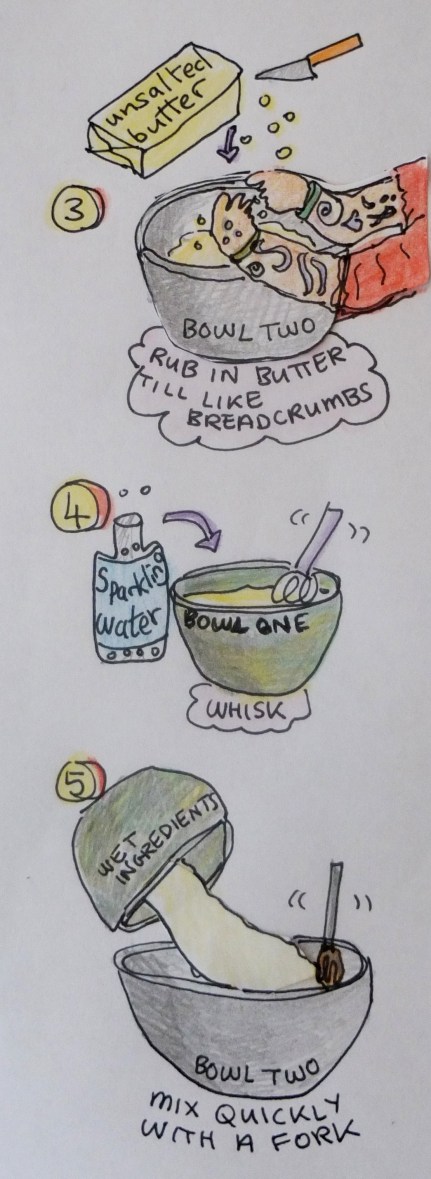 unsalted
butter
3
BOWL TWO
RUB IN BUTTER
TILL LIKE
BREADCRUMBS
4
Sparklin
water
BOWL ONE
WHISK
5
WET
INGREDIENTS
BOWL TWO
MIX QUICKLY
WITH A FORK